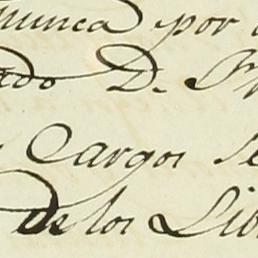 nunca por
do D.
Cargos
de los Lib